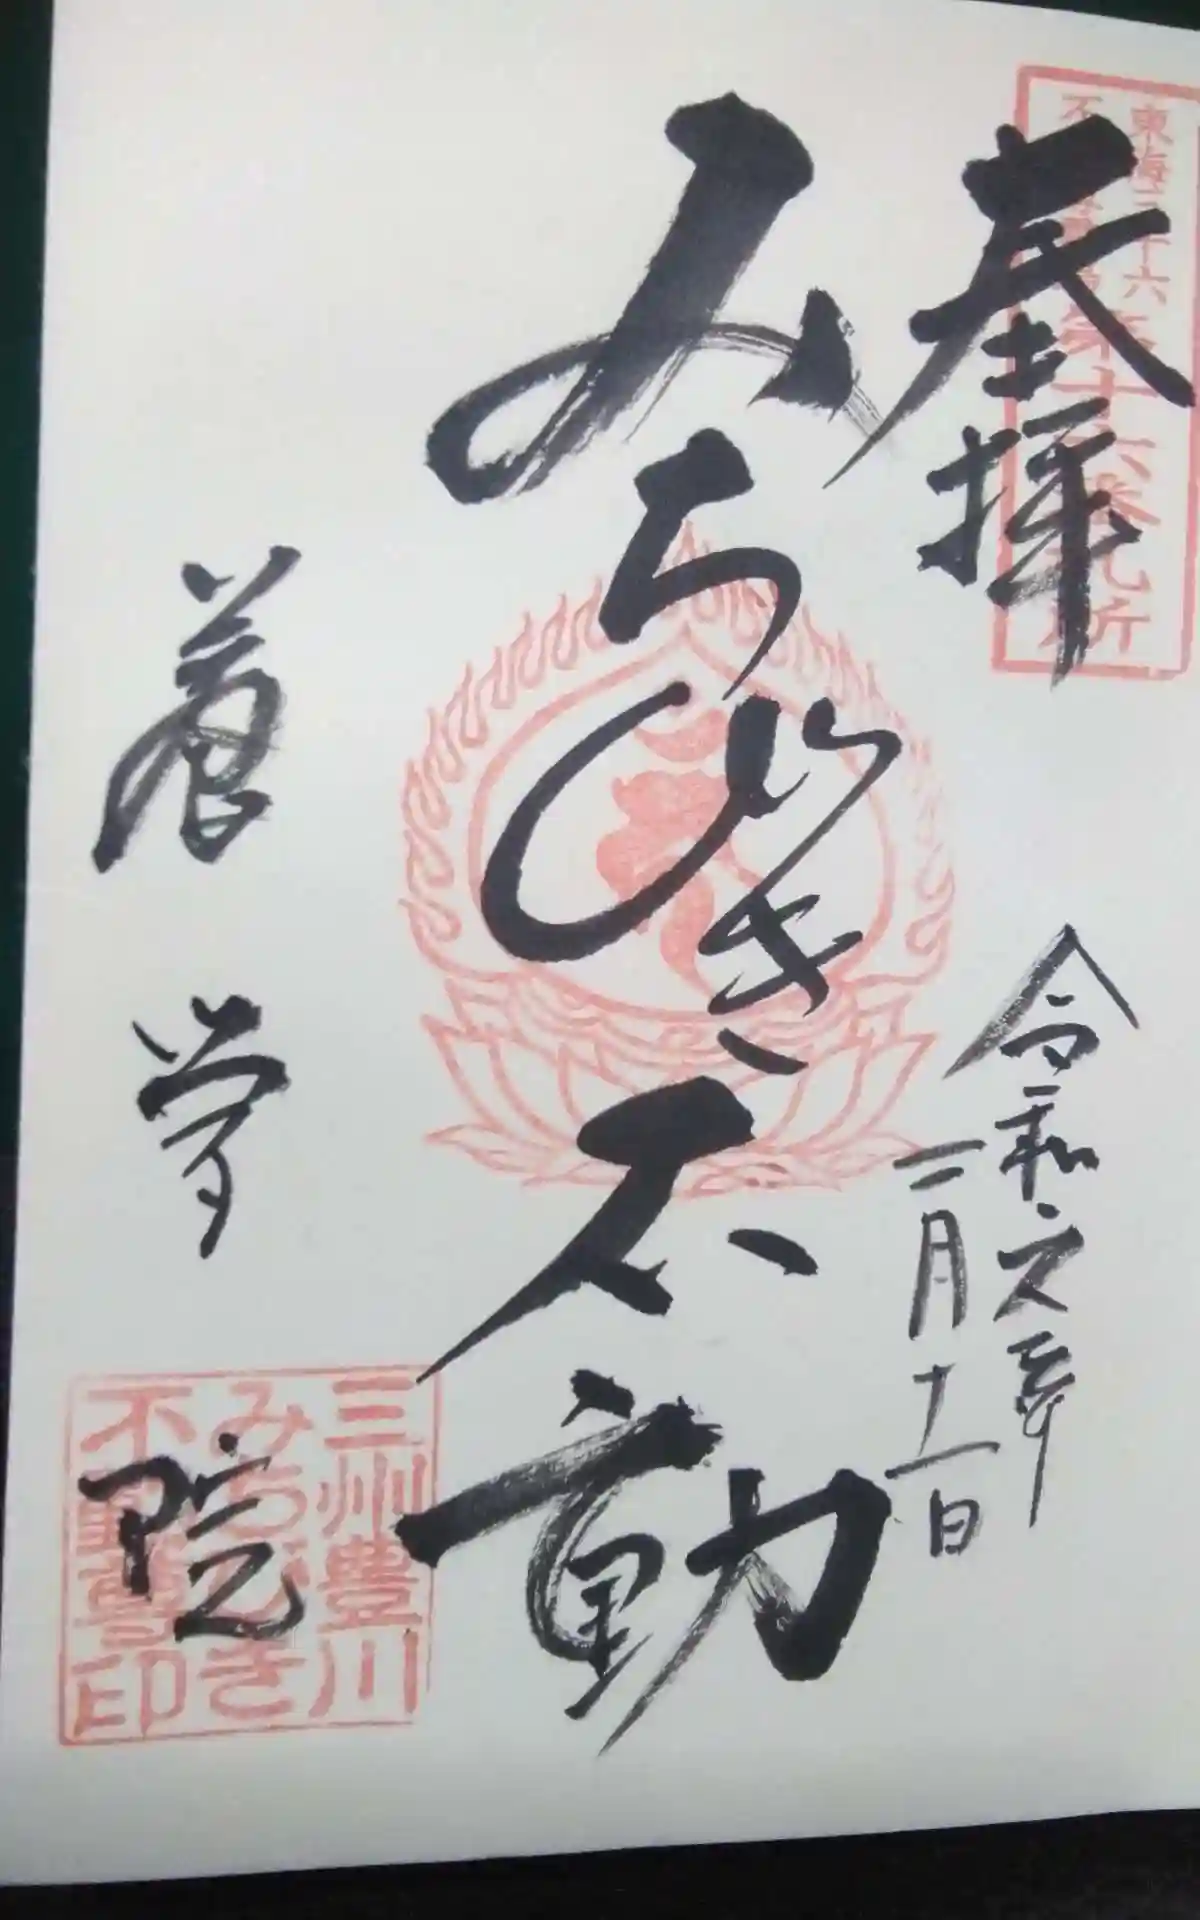 奉拝
東海三十六
不動尊霊場
第十六番札所
令和元年
二月十一日
みちびき不動
養学院
三州豊川
みちびき
不動尊印